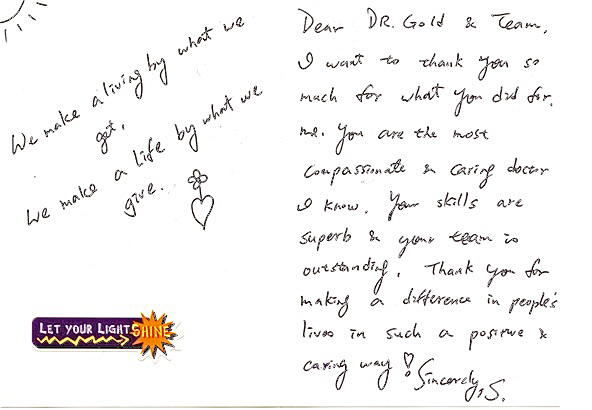 We make a living by what we
get.
We make a life by what we
give.
LET YOUR LIGHT SHINE
Dear DR. Gold & Team,
I want to thank you so
much for what you did for
me. You are the most
compassionate & caring doctor
I know. Your skills are
superb & your team is
outstanding. Thank you for
making a difference in people's
lives in such a positive &
caring way!
Sincerely, S.